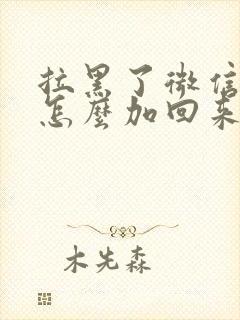 拉黑了微信
怎麼加回来
木先森